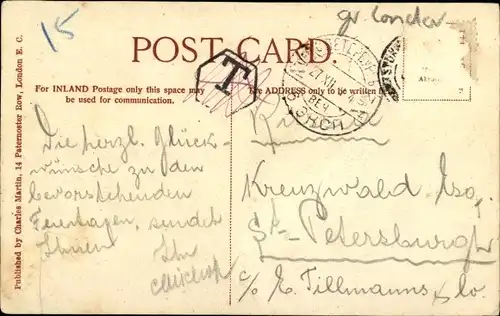 15
gr London
POST CARD.
T
For INLAND Postage only this space may
be used for communication.
The ADDRESS only to be written here
Published by Charles Martin, 14 Paternoster Row, London E. C.
Die herzl. Glück-
wünsche zu den
bevorstehenden
Feiertagen, sendet
Ihnen Ihr
Kreuzwald Esq.,
St-Petersburg
c/o E. Tillmanns & Co.